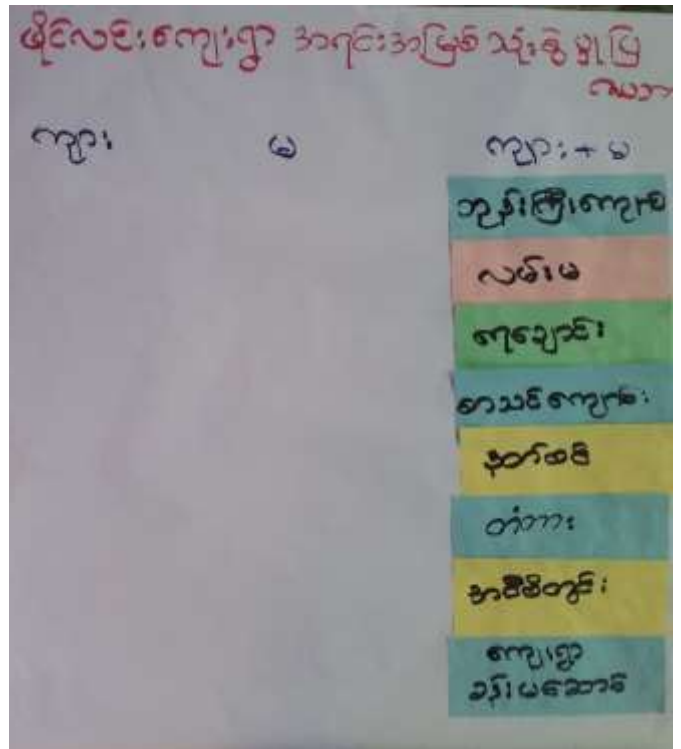 ဖိုင်လင်းကျေးရွာ အရင်းအမြစ်သုံးစွဲမှုပြ
ဇယား
ကျား မ ကျား + မ
ဘုန်းကြီးကျောင်း
လမ်းမ
ရေချောင်း
စာသင်ကျောင်း
နတ်စင်
တံတား
အဝီစိတွင်း
ကျေးရွာ
ခန်းမဆောင်